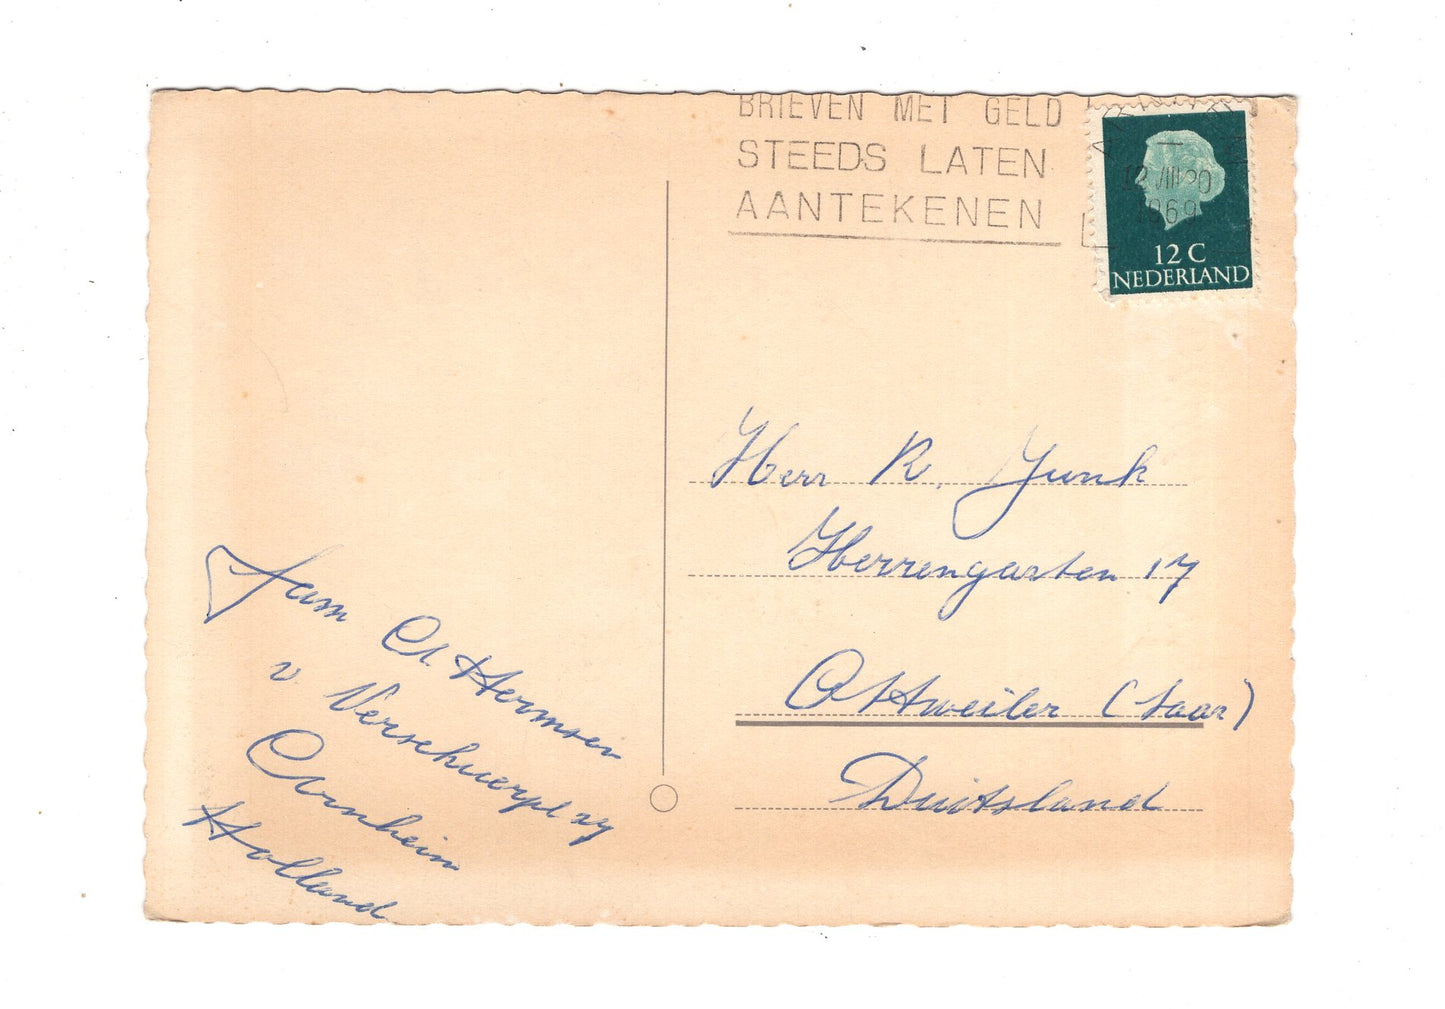 BRIEVEN MET GELD
STEEDS LATEN
AANTEKENEN
12 VIII 20
1969
12 C
NEDERLAND
Herr R. Junk
Herrengarten 17
Ottweiler (Saar)
Duitsland
Fam A. Hermsen
v. Verschuerpl 27
Arnheim
Holland